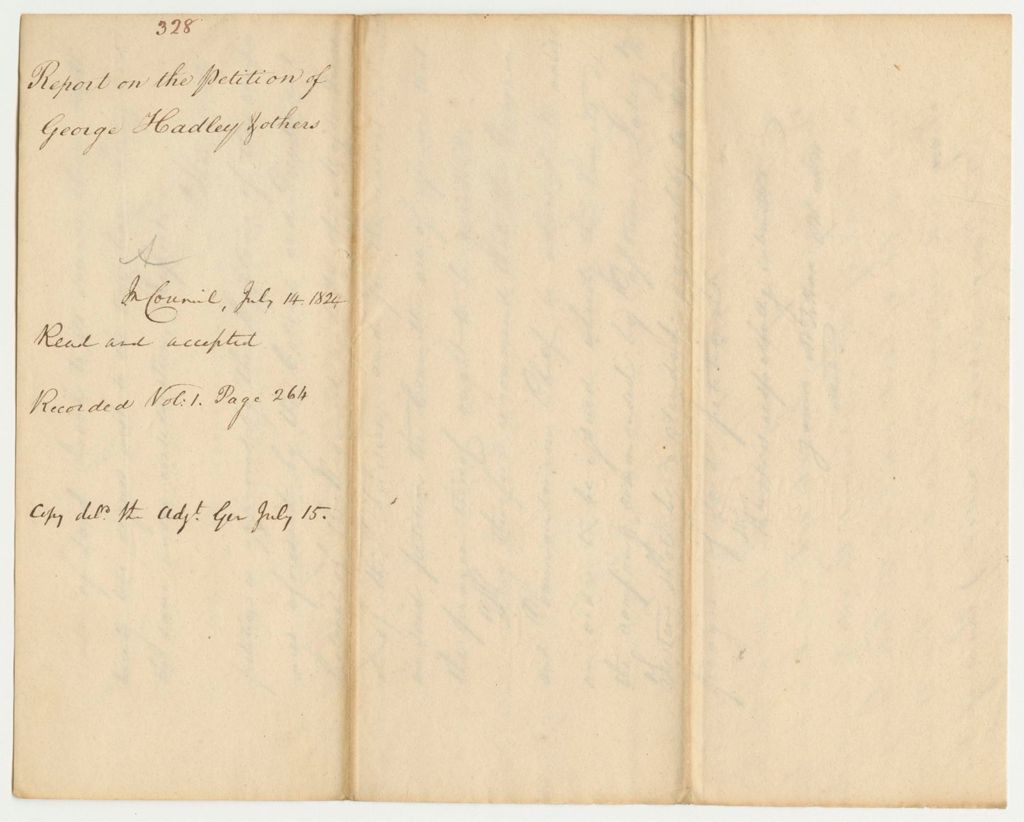 328
Report on the Petition of
George Hadley & others
A
In Council, July 14. 1824
Read and accepted
Recorded Vol: 1. Page 264
Copy deld. the Adjt. Gen July 15.